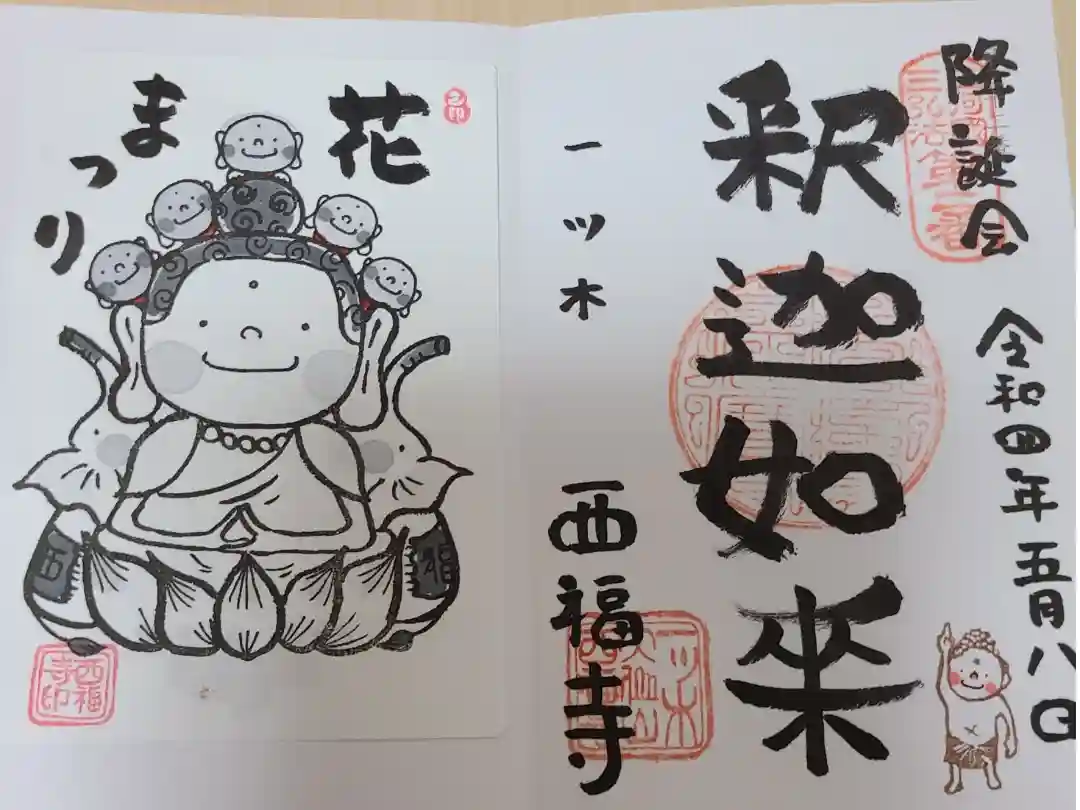 降誕会
令和四年五月八日
釈迦如来
一ツ木
西福寺
花
まつり
西
福
西福
寺印